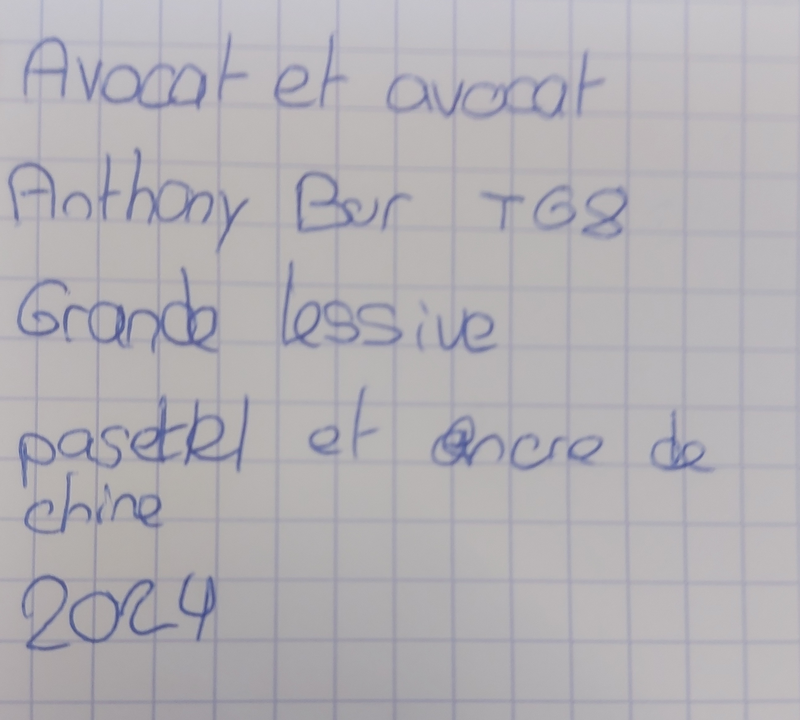 Avocat et avocat
Anthony Bur TG8
Grande lessive
pastel et encre de
chine
2024